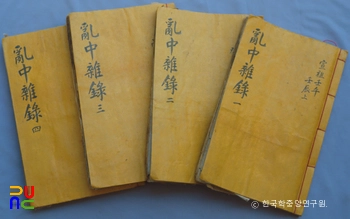 宣祖壬午
壬辰上
亂中雜錄 一
亂中雜錄 二
亂中雜錄 三
亂中雜錄 四
© 한국학중앙연구원